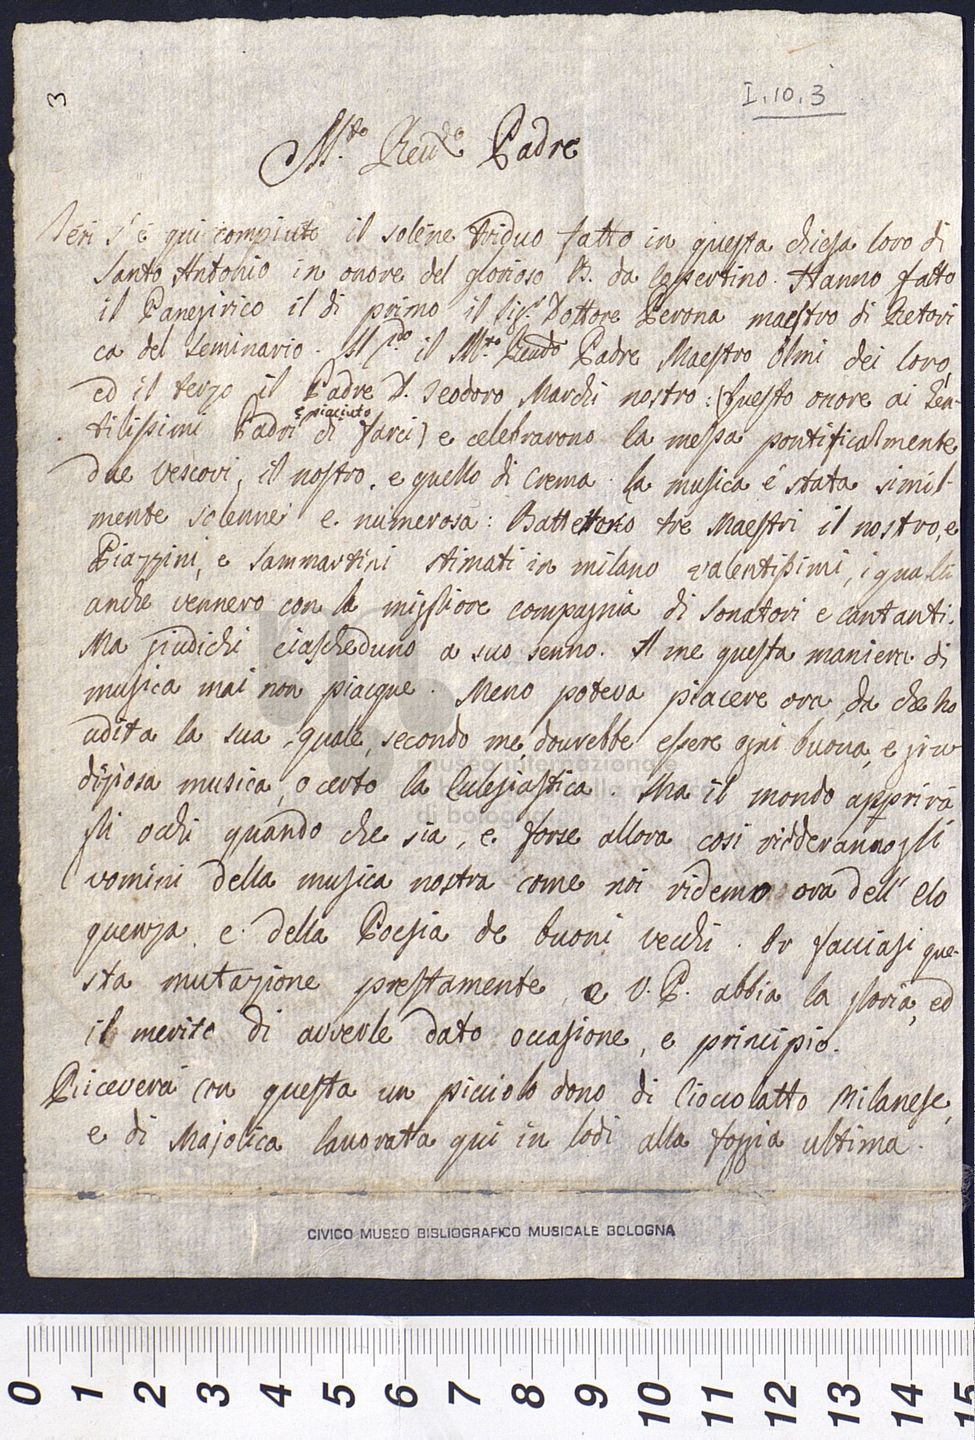 3
I.10.3
M.to Reu.do Padre
Ieri s' è qui compiuto il solene triduo fatto in questa chiesa loro di
Santo Antonio in onore del glorioso B. da Copertino. Hanno fatto
il Panegirico il di primo il Sig.r Dottore Perona maestro di Retori
ca del Seminario. Al 2.do il M.to Reudo Padre Maestro Olmi dei loro,
ed il terzo il Padre D. Teodoro Marchi nostro: (questo onore ai Gen-
tilissimi Padri è piaciuto di farci) e celebrarono la messa pontificalmente
due Vescovi, il nostro, e quello di Crema. la musica è stata simil-
mente solenne e numerosa: Battettero tre Maestri il nostro, e
Piazzini, e Sammartini stimati in milano valentissimi, i quali
anche vennero con la migliore compagnia di Sonatori e cantanti.
Ma giudichi ciascheduno a suo senno. A me questa maniera di
musica mai non piacque. Meno poteva piacere ora, da che ho
udita la sua, quale, secondo me, dovrebbe essere ogni buona, e giu
diziosa musica, o certo la Eclesiastica. Ma il mondo apprirà
gli occhi quando che sia, e forse allora così ridderanno gli
uomini della musica nostra come noi ridemo ora dell' Elo
quenza, e della Poesia de buoni vecchi. Or facciasi que-
sta mutazione prestamente, e V. P. abbia la gloria, ed
il merito di averle dato occasione, e principio.
Riceverà con questa un picciolo dono di Cioccolatto Milanese,
e di Majolica lavorata qui in Lodi alla foggia ultima.
CIVICO MUSEO BIBLIOGRAFICO MUSICALE BOLOGNA
museo internazionale
di bologna
0 1 2 3 4 5 6 7 8 9 10 11 12 13 14 15